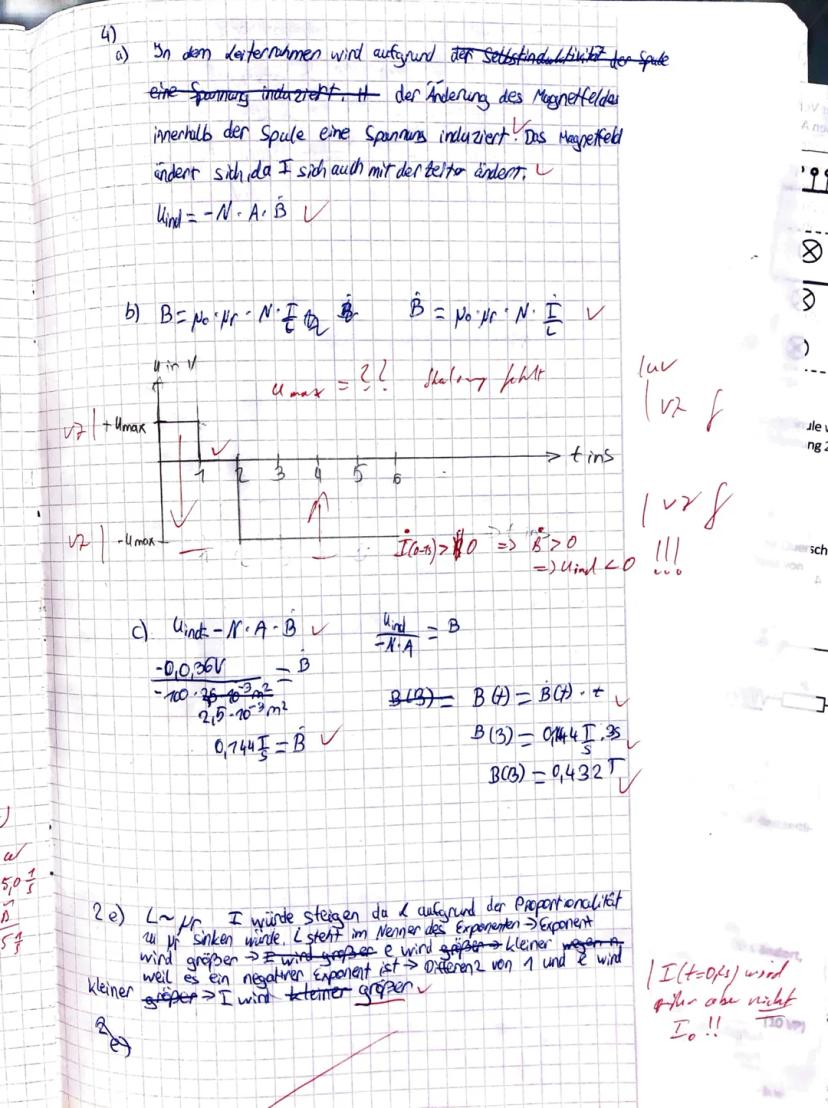 4)
a) In dem Leiterrahmen wird aufgrund der Selbstinduktivität der Spule
eine Spannung induziert. der Änderung des Magnetfeldes
innerhalb der Spule eine Spannung induziert. Das Magnetfeld
ändert sich, da I sich auch mit der Zeit ändert. ✓
Uind = -N · A · Ḃ ✓
b) B = μ0 · μr · N · I/L Ḃ = μ0 · μr · N · İ/L ✓
U in V
Umax = ?? Skalierung fehlt
VZ | + Umax
| VZ f
✓
1 2 3 4 5 6 t in s
| VZ f
VZ | - Umax
İ(0-1s) > 0 => Ḃ > 0 !!!
=> Uind < 0
c) Uind = -N · A · Ḃ ✓ Uind/-N·A = B
-0,036V/-100 · 2,5 · 10⁻³ m² = Ḃ
B(3) = B(t) = Ḃ(t) · t ✓
0,144 T/s = Ḃ ✓
B(3) = 0,144 T/s · 3s ✓
B(3) = 0,432 T ✓
2e) L ~ μr I würde steigen da L aufgrund der Proportionalität
zu μr sinken würde. L steht im Nenner des Exponenten → Exponent
wird größer → I wird größer e wird größer → kleiner wegen
weil es ein negativer Exponent ist → Differenz von 1 und e wird
kleiner größer → I wird kleiner größer ✓
| I(t=0,1s) wird
aber nicht
I0 !!
2e)